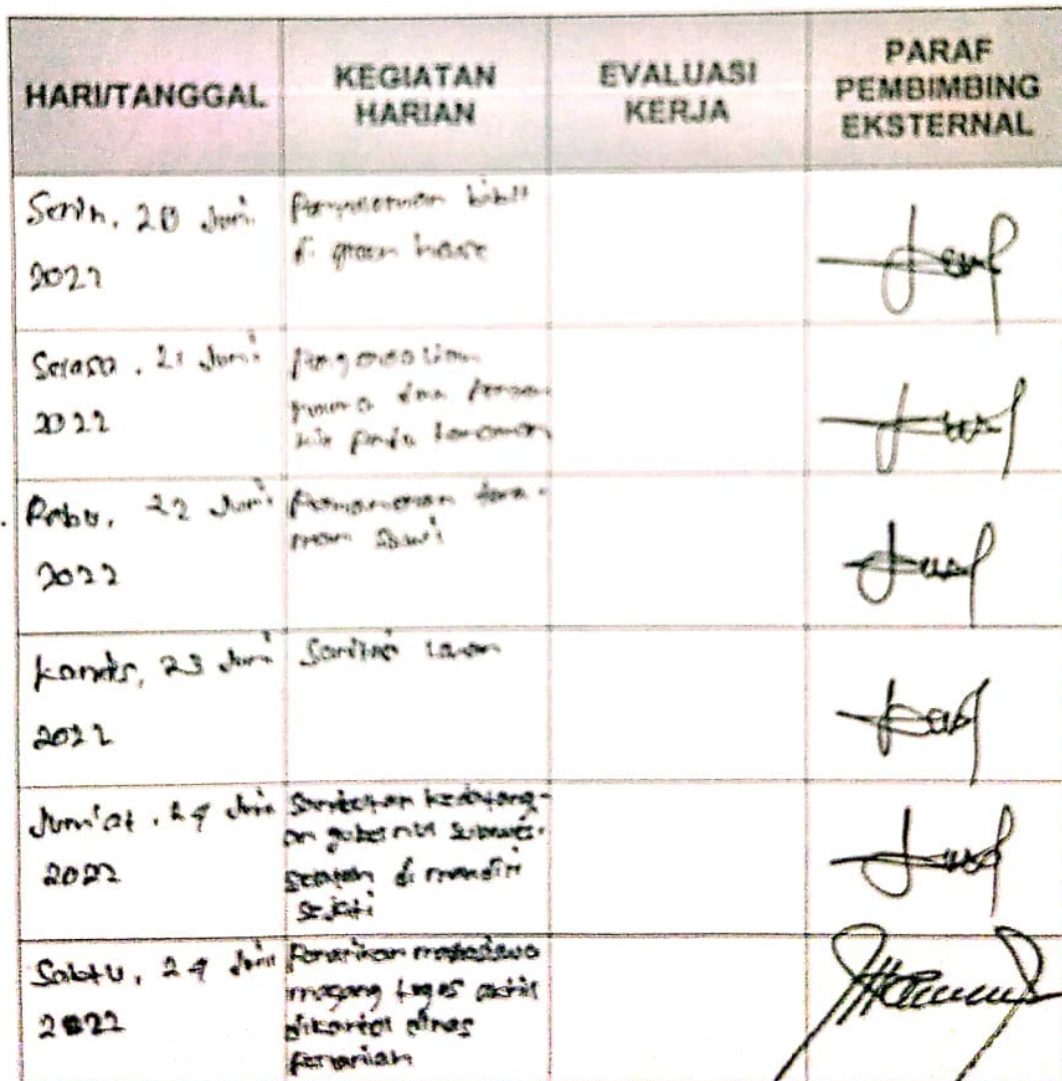 HARI/TANGGAL
KEGIATAN
HARIAN
EVALUASI
KERJA
PARAF
PEMBIMBING
EKSTERNAL
Senin, 20 Juni
2022
Penyiraman bibit
di green house
Selasa, 21 Juni
2022
hama dan
pada tanaman
Rabu, 22 Juni
2022
Pemanenan tana-
man Sawi
Kamis, 23 Juni
2022
Sanitasi Lahan
Jum'at, 24 Juni
2022
Sambutan kedatang-
an gubernur sulawesi-
selatan di mandiri
sejati
Sabtu, 24 Juni
2022
Penarikan mahasiswa
magang tugas akhir
dikantor dinas
pertanian